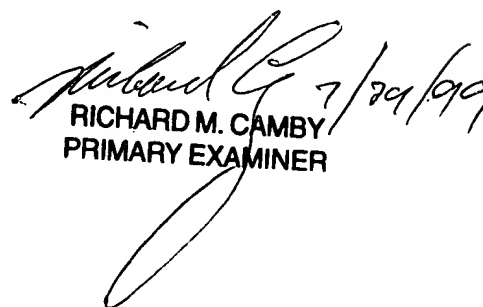 7/29/99
RICHARD M. CAMBY
PRIMARY EXAMINER